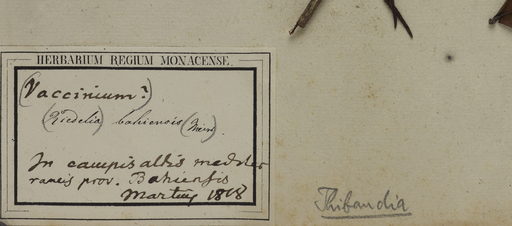 HERBARIUM REGIUM MONACENSE.
(Vaccinium?)
(Riedelia) bahiensis
In campis altis mediter
raneis prov. Bahiensis
Martius 1818
Thibaudia